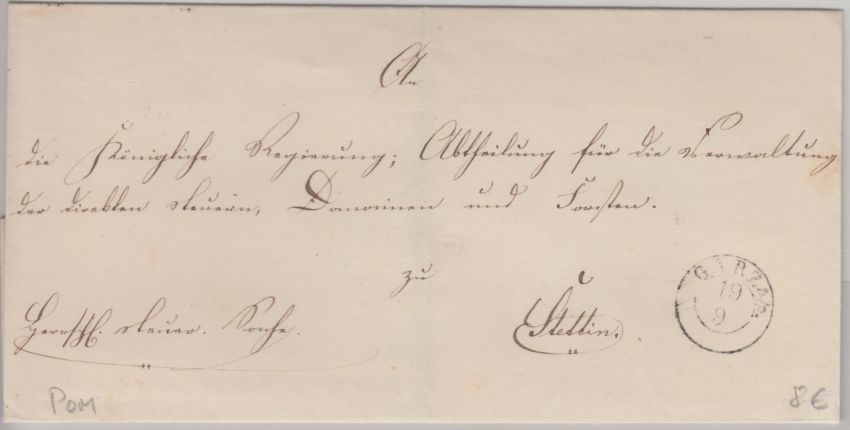 An
die Königliche Regierung; Abtheilung für die Verwaltung
der direkten Steuern, Domainen und Forsten.
zu
Herrschl. Steuer. Sache.
Stettin.
GARZ A/R
19
9
Pom
8€